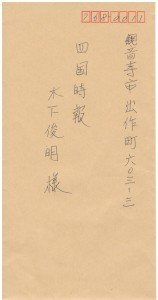 768-0011
観音寺市出作町六〇三-三
四国時報
木下俊明様